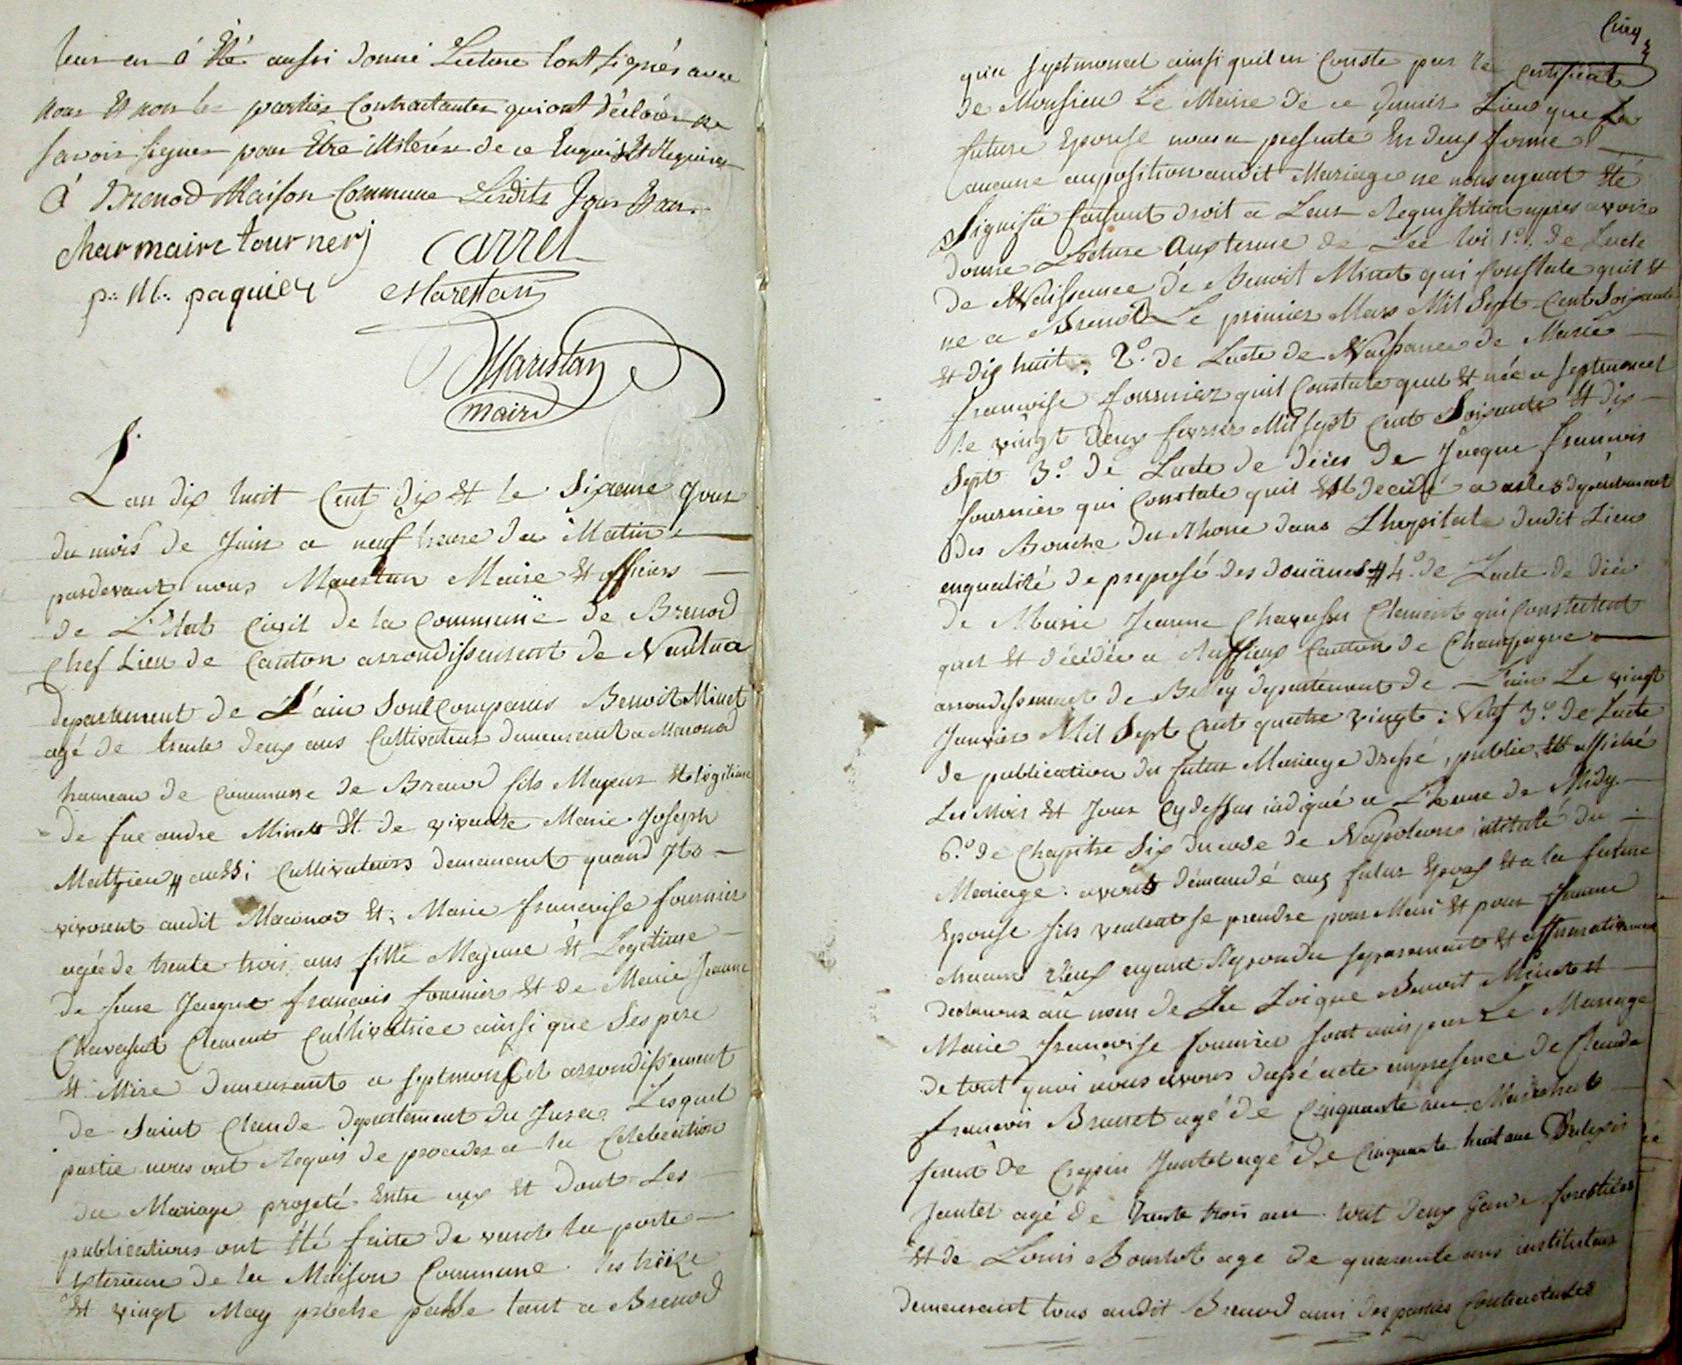 leur en á été aussi donné Lecture sont signés avec
nous et non les parties Contractantes qui ont déclarés ne
savoir signer pour être illitérés de ce Enquis et Requis
á Brenod Maison Commune Lesdits Jour et an
Charmaire tournerj Carrel
p: M: paquiex Marestan
Marestan
maire
L'an dix huit Cent dix et le Sixieme Jour
du mois de Juin a neuf heure du Matin
pardevant nous Marestan Maire et officiers
de L'Etat Civil de la Commune de Brenod
Chef Lieu de Canton arrondissement de Nantua
departement de L'ain Sont Comparus Benoit Minet
agé de trente deux ans Cultivateur demeurant a Maconod
hameau de Commune de Brenod fils Majeur et legitime
de fue andre Minet et de vivante Marie Joseph
Mathieu aussi Cultivateurs demeurant quand Ils
vivoient audit Maconod et Marie francoise fournier
agée de trente trois ans fille Majeure et Legitime
de feue Jacque francois fournier et de Marie Jeanne
Chavassut Clement Cultivatrice ainsi que Ses pere
et Mere demeurant a Septmoncel arrondissement
de Saint Claude departement du Jura Lesquel
partie nous ont Requis de proceder a la Celebration
du Mariage projeté Entre eux et dont Les
publications ont été faite devant la porte
Exterieure de la Maison Commune les treize
et vingt May proche passé tant a Brenod
Cinq
qu'a Septmoncel ainsi quil en Conste par le Certificat
de Monsieur Le Maire de ce dernier Lieu que La
future Epouse nous a presenté En deux forme
aucune auposition audit Mariage ne nous ayant été
Signifié faisant droit a Leur Requisition apres avoir
donné Lecture Aux terme de Lee loi 1º. de Lacte
de Naissance de Benoit Minet qui Constate quil et
né a Brenod Le premier Mars Mil Sept Cent Soixante
et dix huit, 2º. de Lacte de Naissance de Marie
francoise fournier quil Constate quel et née a Septmoncel
le vingt deux fevrier Mil Sept Cent Soixante et dix
Sept 3º de Lacte de décès de Jacque francois
fournier qui Constate quil et decedé a arles departement
des Bouche du Rhone dans L'hopital dudit Lieu
enqualité de preposé des douanes 4º. de Lacte de décè
de Marie Jeanne Chavassu Clement qui Constatent
quel et décédée a Ruffieux Canton de Champagne
arrondissement de Belley departement de L'ain Le vingt
Janvier Mil Sept cent quatre vingt : Neuf 5º de Lacte
de publication du futur Mariage dressé, publié et affiché
Les Mois et Jour Cy dessus indiqué a L'heure de Midy
6.º de Chapitre Six du code de Napoleon intitulé du
Mariage : avons démandé aux futur Epoux et a la future
Epouse sils veulent se prendre pour Mari et pour femme
chacun d'eux ayant Repondu separement et affirmativement
declarons au nom de La Loi que Benoit Minet et
Marie francoise fournier sont unis par Le Mariage
de tout quoi nous avons dressé acte en presence de Claude
francois Brunet agé de Cinquante ans Marechal
ferent de Crepin Jantet agé de Cinquante huit ans
Jantet agé de trente trois ans tout deux Garde forestier
et de Louis Bourlot age de quarante ans instituteur
demeurant tous audit Brenod ami des parties Contractantes